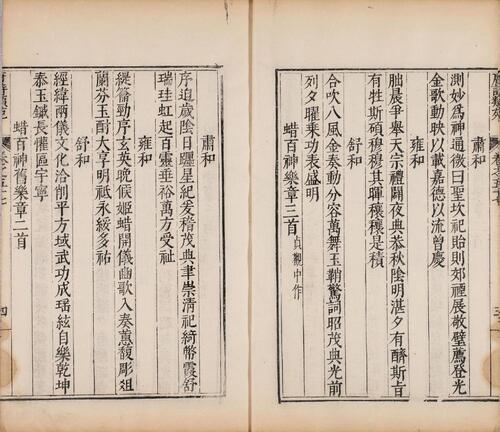 測妙爲神通微曰聖坎祀貽則郊禋展敬璧薦登光
金歌動映以載嘉德以流曾慶
雍和
朏晨爭舉天宗禮闢夜典恭秋陰明湛夕有醑斯旨
有牲斯碩穆穆其暉穰穰是積
舒和
合吹八風金奏動分容萬舞玉鞘驚詞昭茂典光前
列夕曜乘功表盛明
蜡百神樂章三首 貞觀中作
肅和
序迫歲陰日躔星紀爰稽茂典聿崇清祀綺幣霞舒
瑞珪虹起百靈垂裕萬方受祉
雍和
緹籥勁序玄英晚候姬蜡開儀豳歌入奏蕙馥彫俎
蘭芬玉酎大享明祗永綏多祐
舒和
經緯兩儀文化洽削平方域武功成瑤絃自樂乾坤
泰玉鏚長懽區宇寧
蜡百神舊樂章二首
四